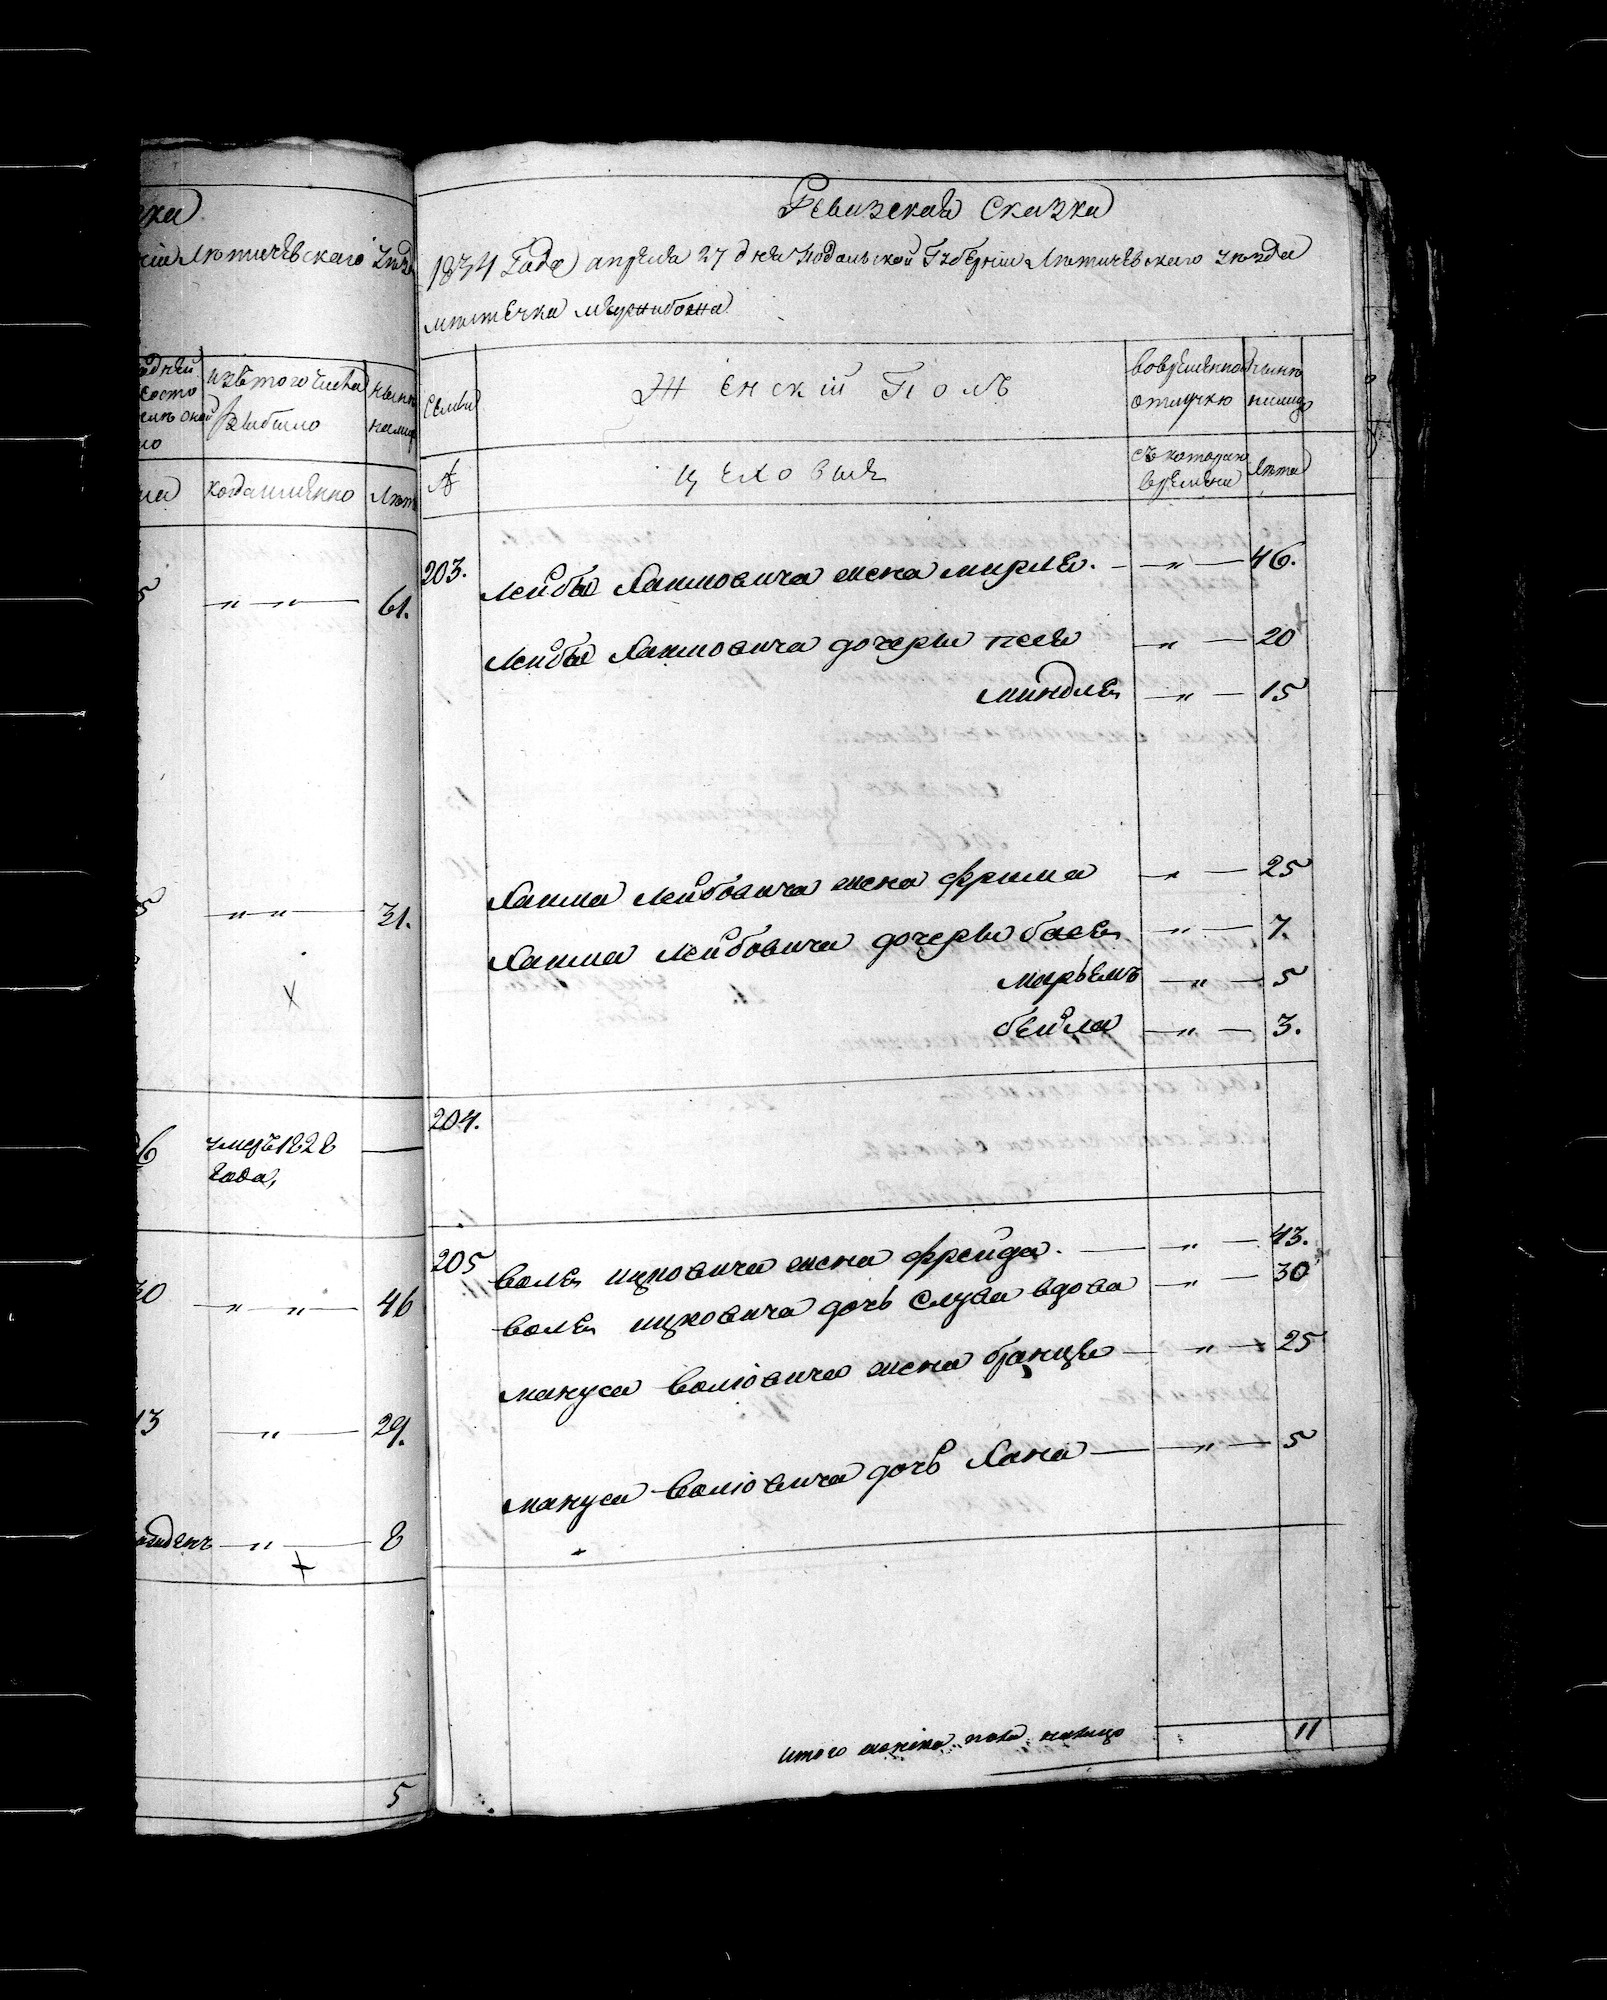 ска
ніи Лѣтичевскаго Уѣзд
изъ того числа
Выбыло
когда именно
Лѣта
" — " — 61.
" — " — 31.
6 умеръ 1828 —
года,
30 " — " — 46
13 — " — 29.
— " — 8
5
Ревизская Сказка
1834 Года апреля 27 дня Подольской Губерніи Лѣтичевскаго уѣзда
мѣстечка Межибожа
Семьи
Женскій Полъ
во временной отлучкѣ
нынѣ на лицо
№
цеховые
съ котораго времени
Лѣта
203. Лейбы Хаимовича жена мирля. — " — 46.
Лейбы Хаимовича дочеры песя — " — 20
миндля — " — 15
Хаима Лейбовича жена фрима — " — 25
Хаима Лейбовича дочеры бася — " — 7.
марьемъ — " — 5
бейла — " — 3.
204.
205 воля ицковича жена фрейда. — " — 43.
воля ицковича дочь Слува вдова — " — 30
мануса волювича жена бранця — " — 25
мануса волювича дочь Хана — " — 5
итого женска пола налицо 11